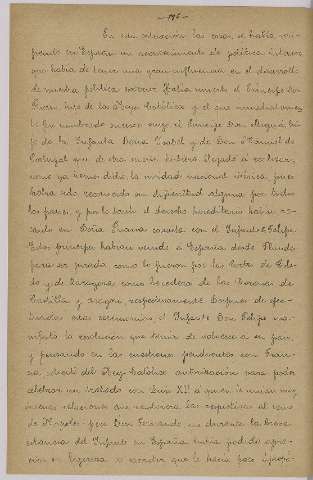 - 196 -
En esta situación las cosas, se había veri-
ficado en España un acontecimiento de política interior
que había de tener una gran influencia en el desarrollo
de nuestra política exterior. Había muerto el Príncipe Don
Juan, hijo de los Reyes Católicos y el que inmediatamen-
te fue nombrado sucesor suyo el Príncipe Don Miguel hi-
jo de la Infanta Doña Isabel y de Don Manuel de
Portugal que de otra suerte hubiera llegado á realizar,
como ya hemos dicho la unidad nacional ibérica, pues
había sido reconocido sin dificultad alguna por todos
los países, y por lo tanto el derecho hereditario había re-
caído en Doña Juana casada con el Infante D. Felipe.
Estos príncipes habían venido á España desde Flandes
para ser jurados como lo fueron por las Cortes de Tole-
do y de Zaragoza como herederos de las Coronas de
Castilla y Aragón respectivamente. Después de efec-
tuadas estas ceremonias el Infante Don Felipe ma-
nifestó la resolución que tenía de volverse a su país,
y pensando en las cuestiones pendientes con Fran-
cia, solicitó del Rey Católico autorización para poder
celebrar un tratado con Luis XII á quien le unían muy
buenas relaciones que resolviera lo respectivo al reino
de Nápoles; pero Don Fernando que durante la breve
estancia del Infante en España había podido apre-
ciar su ligereza y